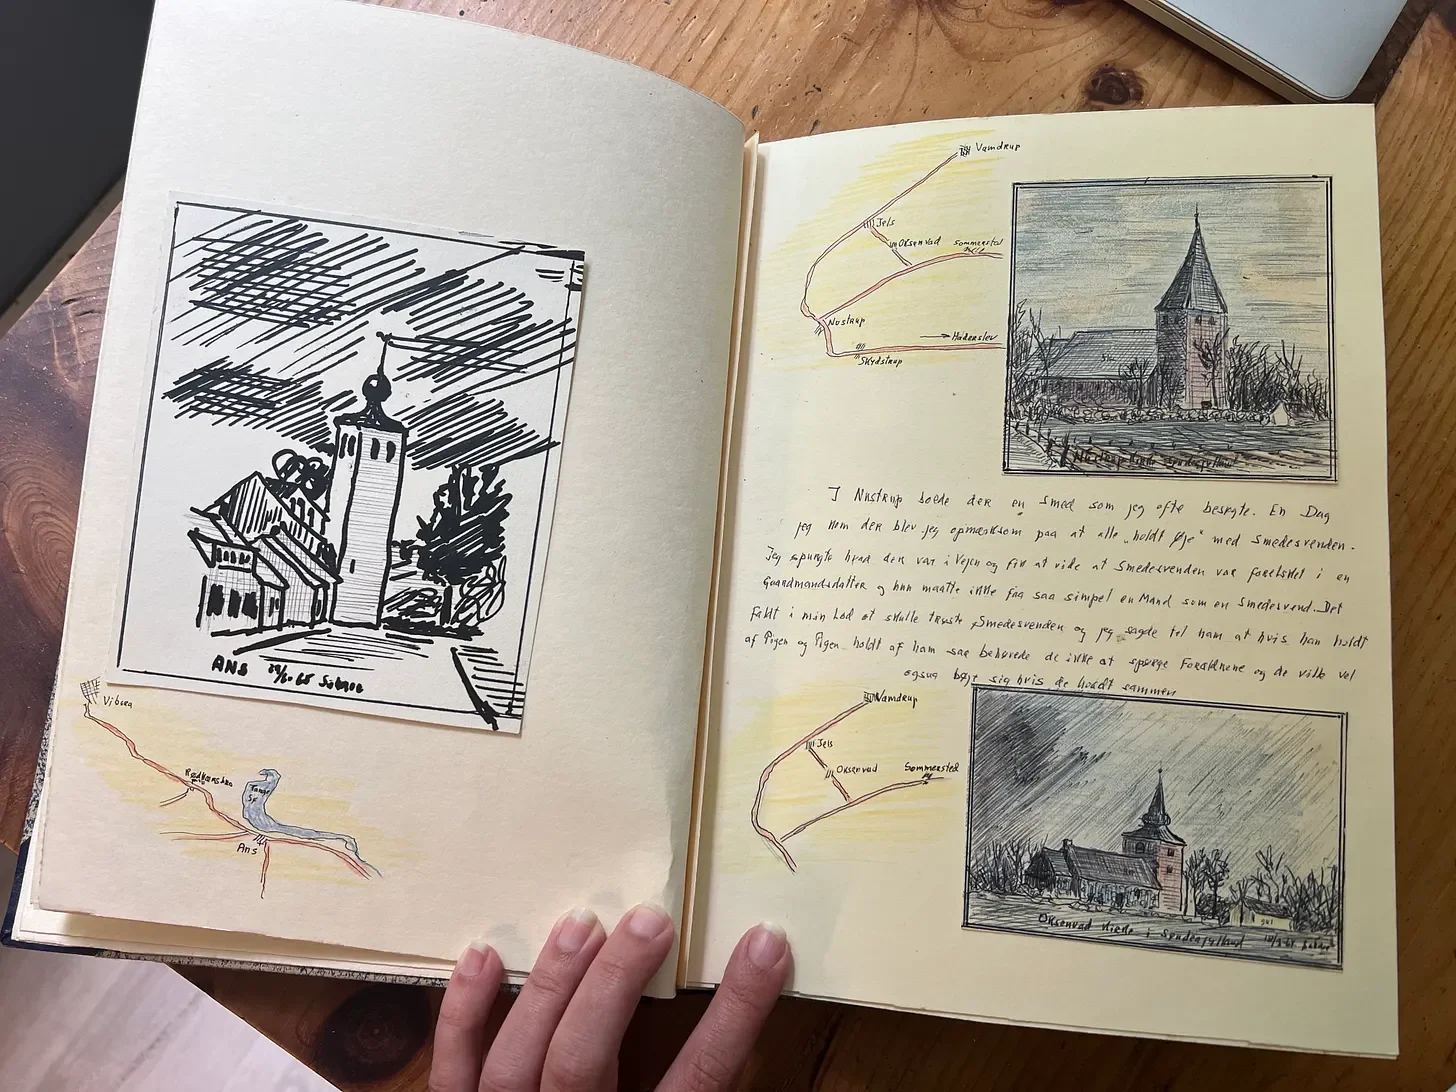 ANS
Viborg
Rødkærsbro
Tange
Sø
Ans
Vamdrup
Jels
Oksenvad
Sommersted
Nustrup
Haderslev
Skydstrup
Nustrup Kirke Sønderjylland
I Nustrup boede der en Smed som jeg ofte besøgte. En Dag
jeg kom der blev jeg opmærksom paa at alle „holdt Øje" med Smedesvenden.
Jeg spurgte hvad der var i Vejen og fik at vide at Smedesvenden var forelsket i en
Gaardmandsdatter og hun maatte ikke faa saa simpel en Mand som en Smedesvend. Det
faldt i min Lod at skulle trøste Smedesvenden og jeg sagde til ham at hvis han holdt
af Pigen og Pigen holdt af ham saa behøvede de ikke at spørge Forældrene og de vilde vel
ogsaa bøje sig hvis de holdt sammen
Vamdrup
Jels
Oksenvad
Sommersted
Oksenvad Kirke i Sønderjylland